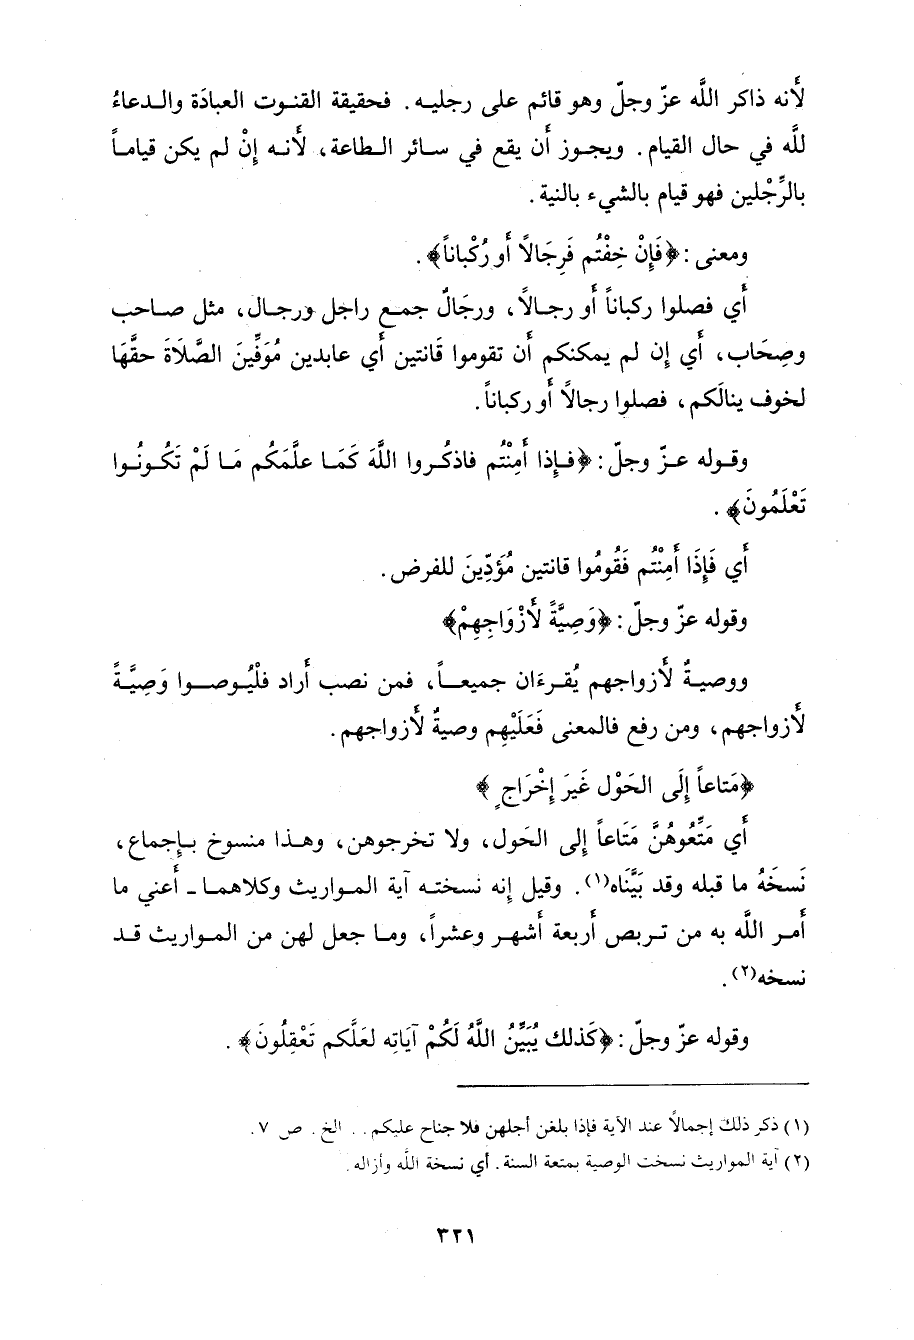 لأَنه ذاكر اللَّه عزّ وجلّ وهو قائم على رجليه. فحقيقة القنوت العبادَة والدعاءُ
للَّه في حال القيام. ويجوز أَن يقع في سائر الطاعة، لأَنه إِنْ لم يكن قياماً
بالرِّجْلين فهو قيام بالشيء بالنية.
ومعنى: ﴿فَإِنْ خِفْتُم فَرِجَالًا أَو رُكْباناً﴾.
أَي فصلوا ركباناً أَو رجالًا، ورجَالٌ جمع راجل ورجال، مثل صاحب
وصِحَاب، أَي إِن لم يمكنكم أَن تقوموا قَانتين أَي عابدين مُوَفِّينَ الصَّلَاةَ حقَّهَا
لخوف ينالَكم، فصلوا رجالًا أَو ركباناً.
وقوله عزّ وجلّ: ﴿فإذا أَمِنْتُم فاذكُروا اللَّهَ كَمَا علَّمَكُم مَا لَمْ تَكُونُوا
تَعْلَمُونَ﴾.
أَي فَإِذَا أَمِنْتُم فَقُومُوا قانتين مُؤَدِّينَ للفرض.
وقوله عزّ وجلّ: ﴿وَصِيَّةً لأَزْوَاجِهِمْ﴾
ووصيةٌ لأَزواجهم يُقرءَان جميعاً، فمن نصب أَراد فلْيُوصوا وَصِيَّةً
لأَزواجهم، ومن رفع فالمعنى فَعَلَيْهِم وصيةٌ لأَزواجهم.
﴿مَتاعاً إِلَى الحَوْل غَيرَ إِخْرَاجٍ﴾
أَي مَتِّعُوهُنَّ مَتَاعاً إلى الحَول، ولا تخرجوهن، وهذا منسوخ بإجماع،
نَسخَهُ ما قبله وقد بَيَّنَّاه(١). وقيل إنه نسخته آية المواريث وكلاهما - أَعني ما
أَمر اللَّه به من تربص أَربعة أَشهر وعشراً، وما جعل لهن من المواريث قد
نسخه(٢).
وقوله عزّ وجلّ: ﴿كَذلك يُبَيِّنُ اللَّهُ لَكُمْ آيَاتِه لعَلَّكم تَعْقِلُونَ﴾.
(١) ذكر ذلك إجمالًا عند الآية فإذا بلغن أجلهن فلا جناح عليكم.. الخ. ص ٧.
(٢) آية المواريث نسخت الوصية بمتعة السنة. أي نسخة الله وأزاله.
٣٢١